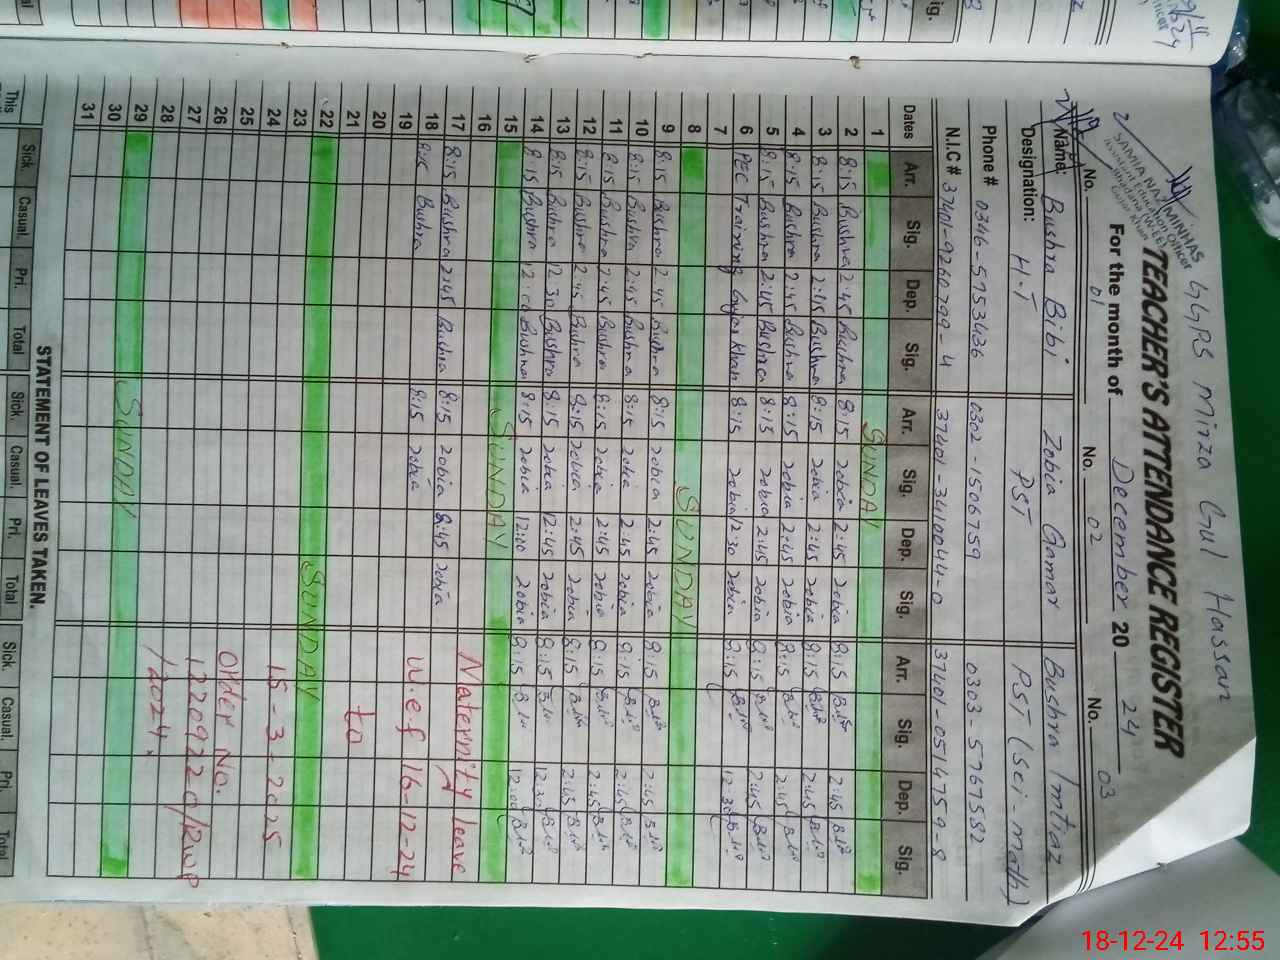 GGPS Mirza Gul Hassan
TEACHER'S ATTENDANCE REGISTER
SAMIA NAZ MINHAS
For the month of December 2024
No. 01 No. 02 No. 03
Name: Bushra Bibi Zobia Qamar Bushra Imtiaz
Designation: H.T PST PST (Sci-math)
Phone # 0346-5953436 0302-1506759 0303-5767582
N.I.C # 37401-9260799-4 37401-3410044-0 37401-0514759-8
Dates Arr. Sig. Dep. Sig. Arr. Sig. Dep. Sig. Arr. Sig. Dep. Sig.
1 SUNDAY
2 8:15 Bushra 2:45 Bushra 8:15 Zobia 2:45 Zobia 8:15 2:45
3 8:15 Bushra 2:45 Bushra 8:15 Zobia 2:45 Zobia 8:15 2:45
4 8:15 Bushra 2:45 Bushra 8:15 Zobia 2:45 Zobia 8:15 2:45
5 8:15 Bushra 2:45 Bushra 8:15 Zobia 2:45 Zobia 8:15 2:45
6 PEC Training Gujar Khan 8:15 Zobia 12:30 Zobia 8:15 12:30
7
8 SUNDAY
9 8:15 Bushra 2:45 Bushra 8:15 Zobia 2:45 Zobia 8:15 2:45
10 8:15 Bushra 2:45 Bushra 8:15 Zobia 2:45 Zobia 8:15 2:45
11 8:15 Bushra 2:45 Bushra 8:15 Zobia 2:45 Zobia 8:15 2:45
12 8:15 Bushra 2:45 Bushra 8:15 Zobia 2:45 Zobia 8:15 2:45
13 8:15 Bushra 12:30 Bushra 8:15 Zobia 12:45 Zobia 8:15 12:30
14 8:15 Bushra 12:00 Bushra 8:15 Zobia 12:00 Zobia 8:15 12:00
15 SUNDAY
16
17 8:15 Bushra 2:45 Bushra 8:15 Zobia 2:45 Zobia Maternity leave
18 8:15 Bushra 8:15 Zobia
19 w.e.f 16-12-24
20
21 to
22 SUNDAY
23
24 15-3-2025
25
26 Order No.
27 1220922 0/RWP
28 /2024.
29 SUNDAY
30
31
STATEMENT OF LEAVES TAKEN.
This Sick. Casual. Pri. Total Sick. Casual. Pri. Total Sick. Casual. Pri. Total
18-12-24 12:55